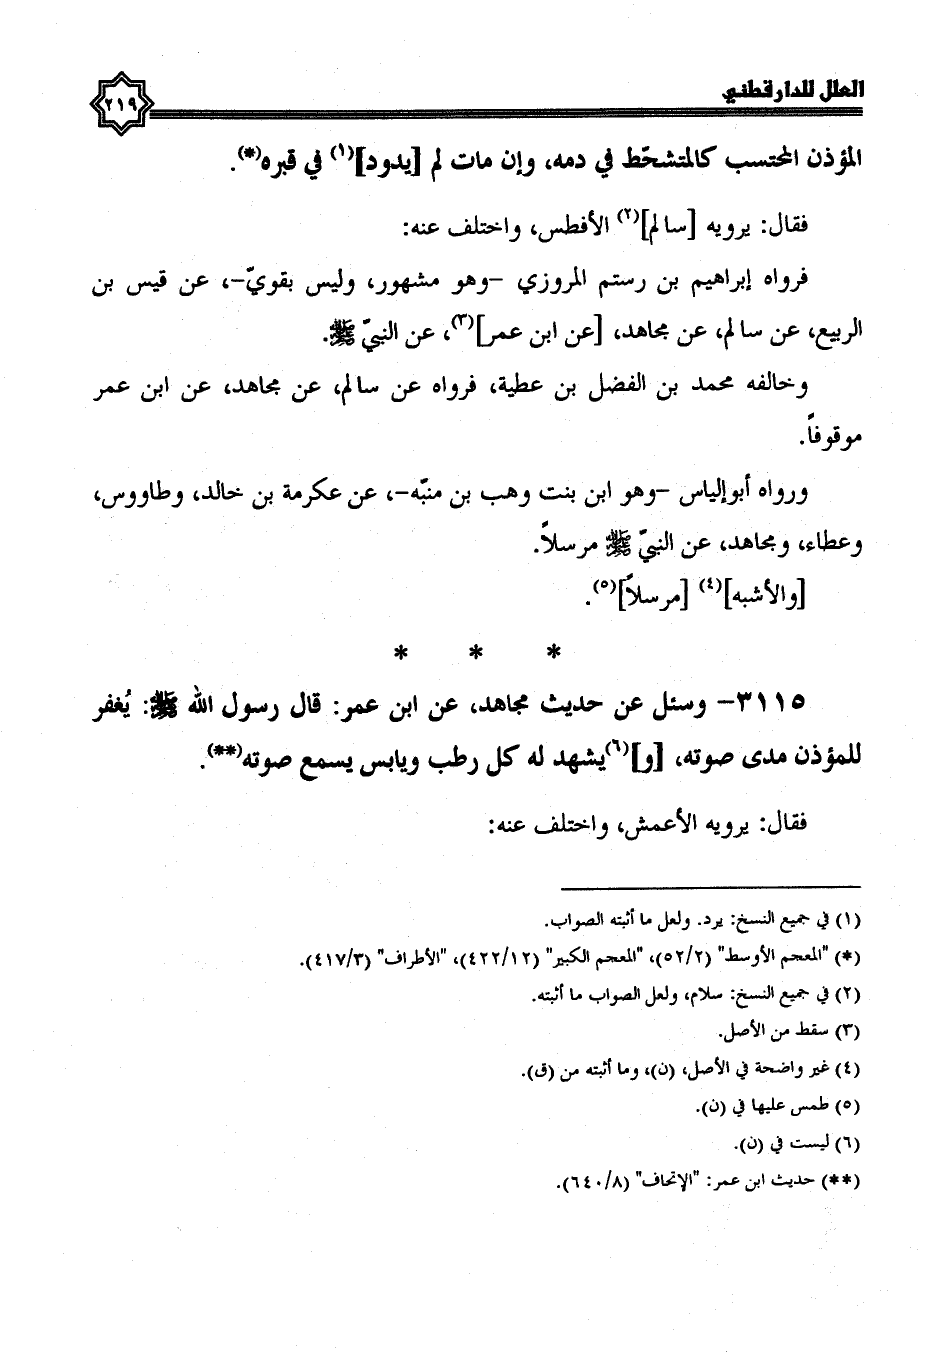 العلل للدارقطني
٢١٩
المؤذن المحتسب كالمتشحّط في دمه، وإن مات لم [يدود](١) في قبره(*).
فقال: يرويه [سالم](٢) الأفطس، واختلف عنه:
فرواه إبراهيم بن رستم المروزي -وهو مشهور، وليس بقويّ-، عن قيس بن
الربيع، عن سالم، عن مجاهد، [عن ابن عمر](٣)، عن النبيّ ﷺ.
وخالفه محمد بن الفضل بن عطية، فرواه عن سالم، عن مجاهد، عن ابن عمر
موقوفاً.
ورواه أبوإلياس -وهو ابن بنت وهب بن منبّه-، عن عكرمة بن خالد، وطاووس،
وعطاء، ومجاهد، عن النبيّ ﷺ مرسلاً.
[والأشبه](٤) [مرسلاً](٥).
* * *
٣١١٥- وسئل عن حديث مجاهد، عن ابن عمر: قال رسول الله ﷺ: يُغفر
للمؤذن مدى صوته، [و](٦)يشهد له كل رطب ويابس يسمع صوته(**).
فقال: يرويه الأعمش، واختلف عنه:
(١) في جميع النسخ: يرد. ولعل ما أثبته الصواب.
(*) "المعجم الأوسط" (٥٢/٢)، "المعجم الكبير" (٤٢٢/١٢)، "الأطراف" (٤١٧/٣).
(٢) في جميع النسخ: سلام، ولعل الصواب ما أثبته.
(٣) سقط من الأصل.
(٤) غير واضحة في الأصل، (ن)، وما أثبته من (ق).
(٥) طمس عليها في (ن).
(٦) ليست في (ن).
(**) حديث ابن عمر: "الإتحاف" (٦٤٠/٨).